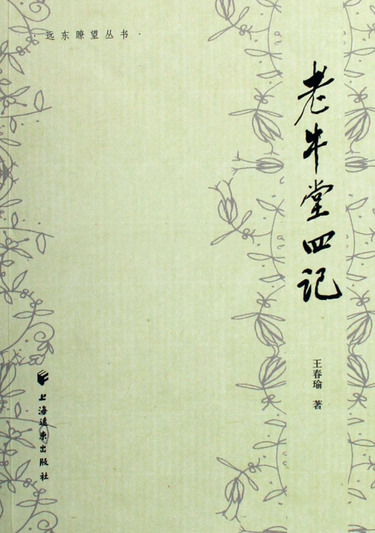 · 远东瞭望丛书 ·
老牛堂四记
王春瑜 著
上海远东出版社